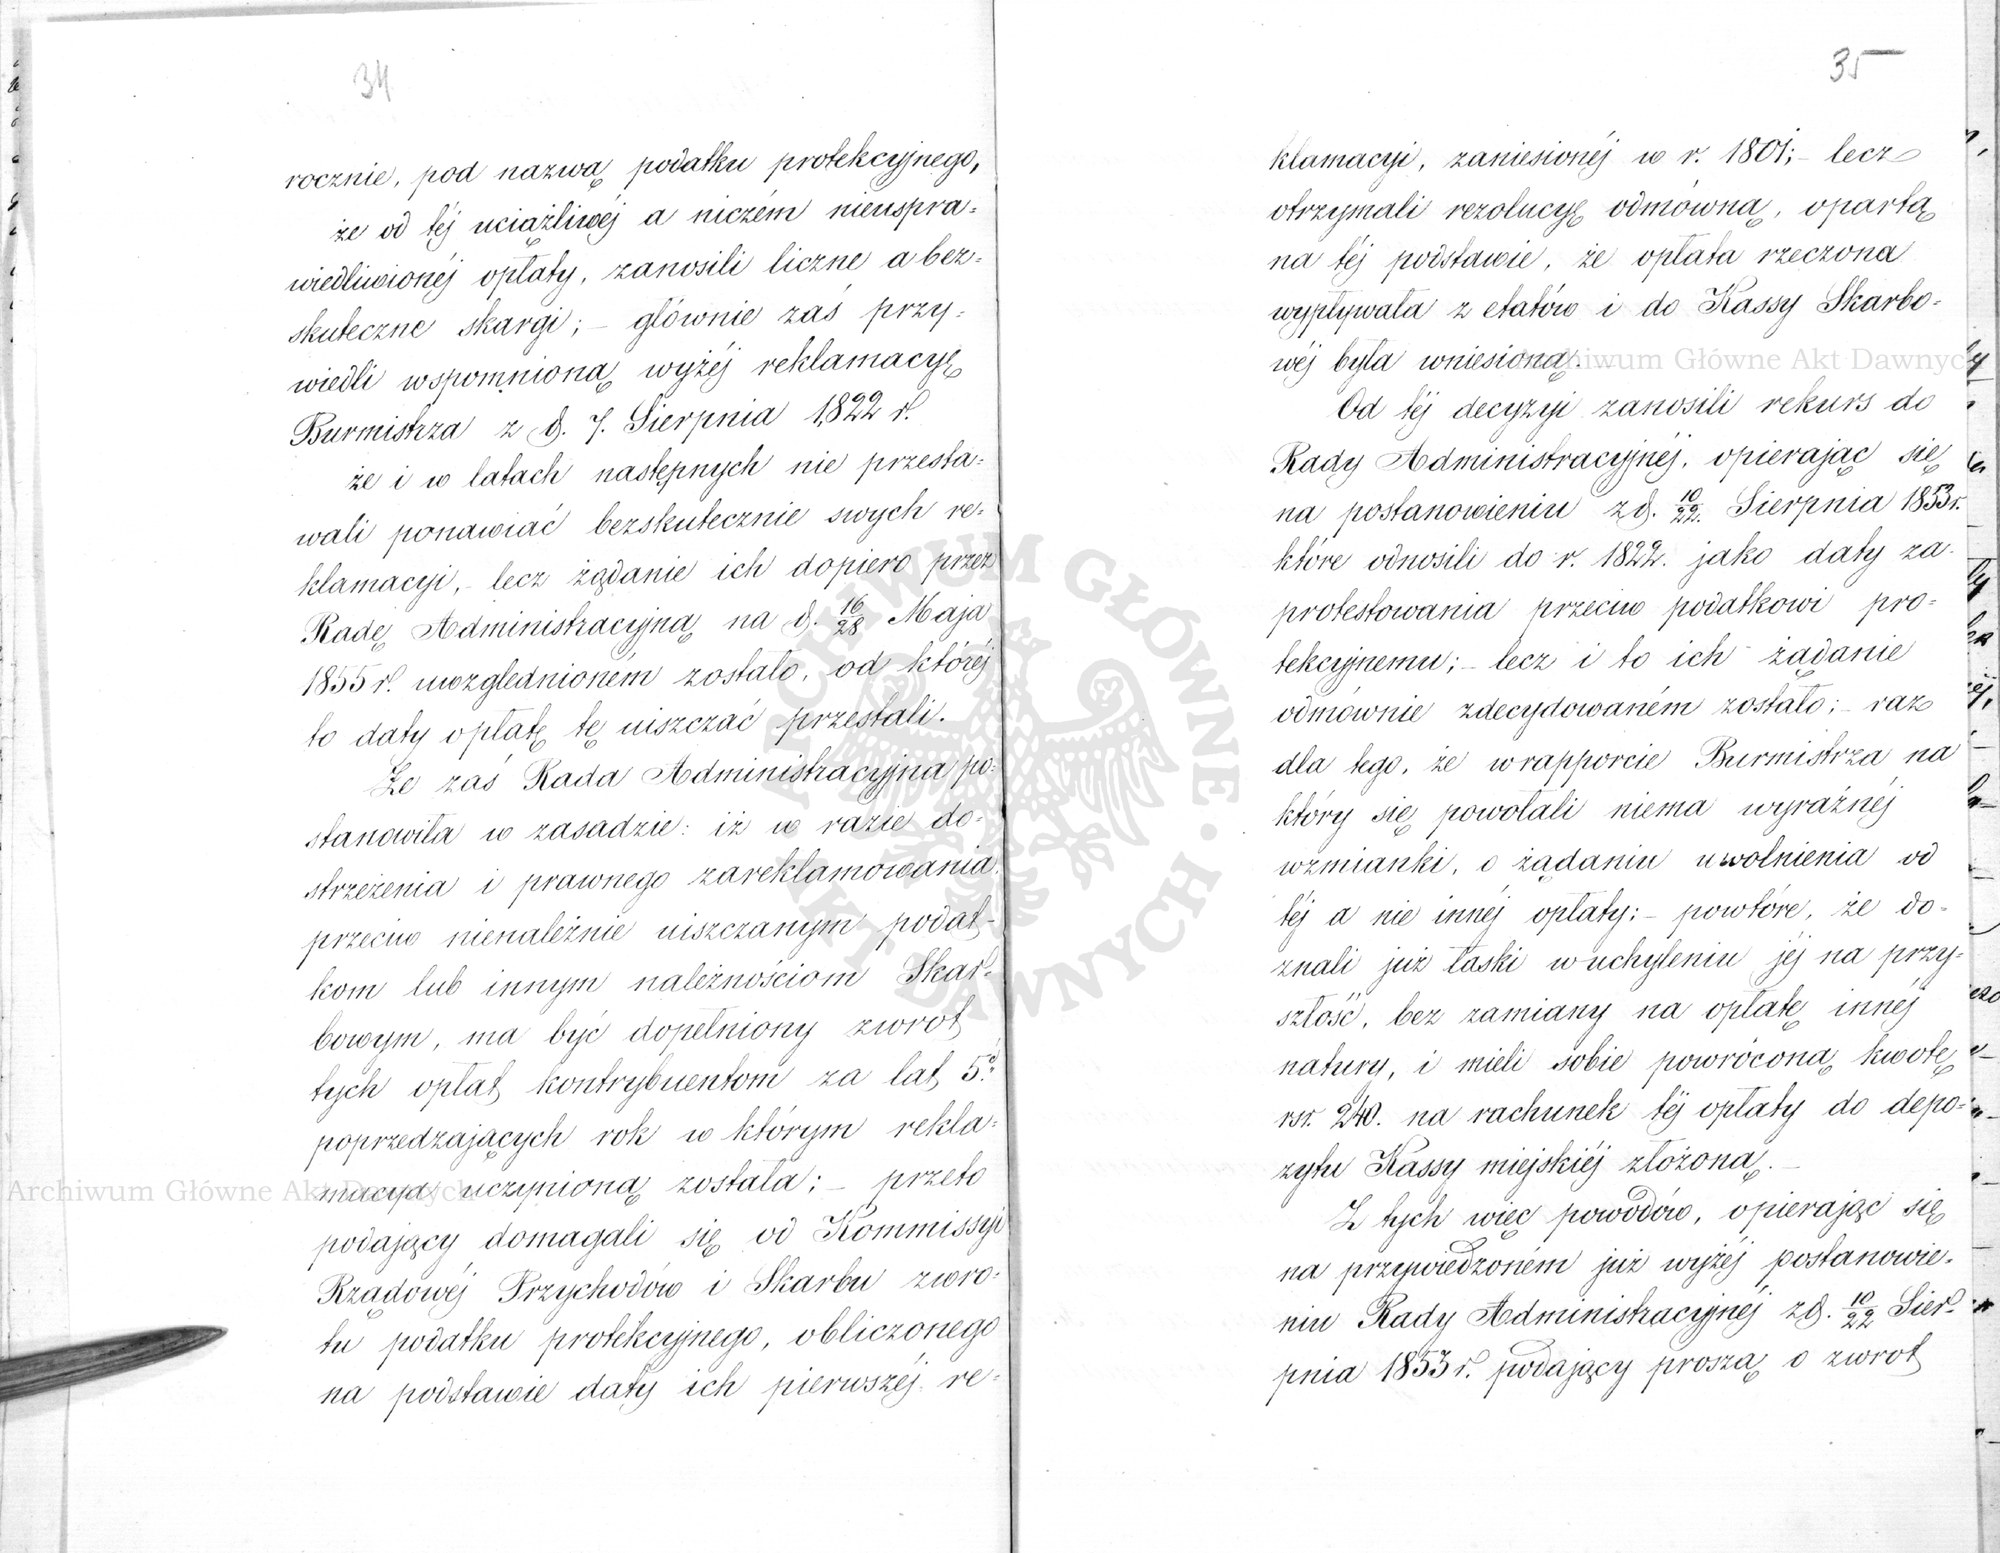 34
rocznie, pod nazwą podatku protekcyjnego,
że od téj uciążliwéj a niczém nieuspra=
wiedliwionéj opłaty, zanosili liczne a bez=
skuteczne skargi; – głównie zaś przy=
wiedli wspomnioną wyżéj reklamacyę
Burmistrza z d. 7. Sierpnia 1822 r.
że i w latach następnych nie przesta=
wali ponawiać bezskutecznie swych re=
klamacyi, – lecz żądanie ich dopiero przez
Radę Administracyjną na d. 16/28 Maja
1855 r. uwzględnioném zostało, od któréj
to daty opłatę tę uiszczać przestali.
Że zaś Rada Administracyjna po=
stanowiła w zasadzie: iż w razie do=
strzeżenia i prawnego zareklamowania
przeciw nienależnie uiszczanym podat=
kom lub innym należnościom Skar=
bowym, ma być dopełniony zwrot
tych opłat kontrybuentom za lat 5.
poprzedzających rok w którym rekla=
macya uczynioną została; – przeto
podający domagali się od Kommissyi
Rządowéj Przychodów i Skarbu zwro=
tu podatku protekcyjnego, obliczonego
na podstawie daty ich pierwszéj re=
35
klamacyi, zaniesionéj w r. 1801; – lecz
otrzymali rezolucyę odmówną, opartą
na téj podstawie, że opłata rzeczona
wypływała z etatów i do Kassy Skarbo=
wéj była wniesioną. –
Od téj decyzyi zanosili rekurs do
Rady Administracyjnéj, opierając się
na postanowieniu z d. 10/22. Sierpnia 1853 r.
które odnosili do r. 1822. jako daty za=
protestowania przeciw podatkowi pro=
tekcyjnemu; – lecz i to ich żądanie
odmównie zdecydowaném zostało; – raz
dla tego, że w rapporcie Burmistrza na
który się powołali niema wyraźnéj
wzmianki, o żądaniu uwolnienia od
téj a nie innéj opłaty; – powtóre, że do=
znali już łaski w uchyleniu jéj na przy=
szłość, bez zamiany na opłatę innéj
natury, i mieli sobie powróconą kwotę
rsr. 240. na rachunek téj opłaty do depo=
zytu Kassy miejskiéj złożoną. –
Z tych więc powodów, opierając się
na przywiedzoném już wyżéj postanowie=
niu Rady Administracyjnéj z d. 10/22 Sier=
pnia 1853 r. podający proszą o zwrot
Archiwum Główne Akt Dawnych
Archiwum Główne Akt Dawnych
ARCHIWUM GŁÓWNE • AKT DAWNYCH •